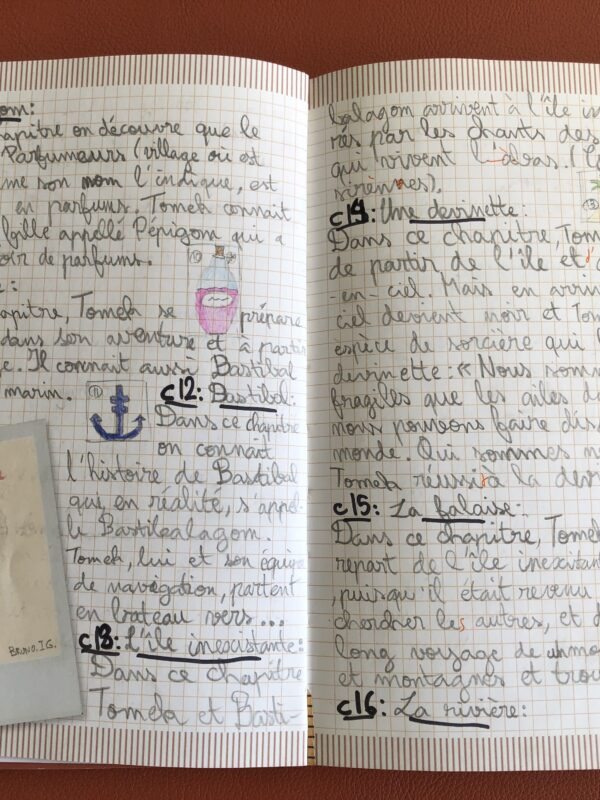 om:
hapitre on découvre que le
Parfumeurs (village où est
me son nom l'indique, est
en parfums. Tomek connait
fille appellé Pépigom qui a
oir de parfums.
e:
hapitre, Tomek se prépare
dans son aventure et à parti
ge. Il connait aussi Bastibal
marin.
c12: Bastibal:
Dans ce chapitre
on connait
l'histoire de Bastibal
qui, en réalité, s'appel-
le Bastibalagom.
Tomek, lui et son équipa
de navigation, partent
en bateau vers...
c13: L'île inexistante:
Dans ce chapitre
Tomek et Basti-
BRUNO.I.G.
balagom arrivent à l'île in
rés par les chants des
qui vivent là-bas. (
sirènes).
c14: Une devinette:
Dans ce chapitre, Tom
de partir de l'île et d'
-en-ciel. Mais en arrivan
ciel devient noir et Tom
espèce de sorcière qui l
devinette: « Nous somm
fragiles que les ailes de
nous pouvons faire disp
monde. Qui sommes no
Tomek réussi à la devi
c15: La falaise:
Dans ce chapitre, Tomek
repart de l'île inexistant
, puisqu'il était revenu
chercher les autres, et d
long voyage de
et montagnes et trou
c16: La rivière: